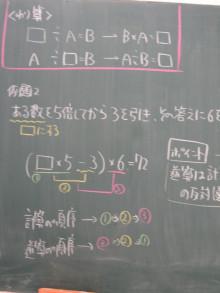 〈わり算〉
□÷A=B → B×A=□
A÷□=B → A÷B=□
例題2
ある数を5倍してから3を引き、その答えに6を
□にする
(□×5−3)×6=72
① ② ③
ポイント
逆算は計
の反対
計算の順序 → ①→②→③
逆算の順序 → ③→②→①